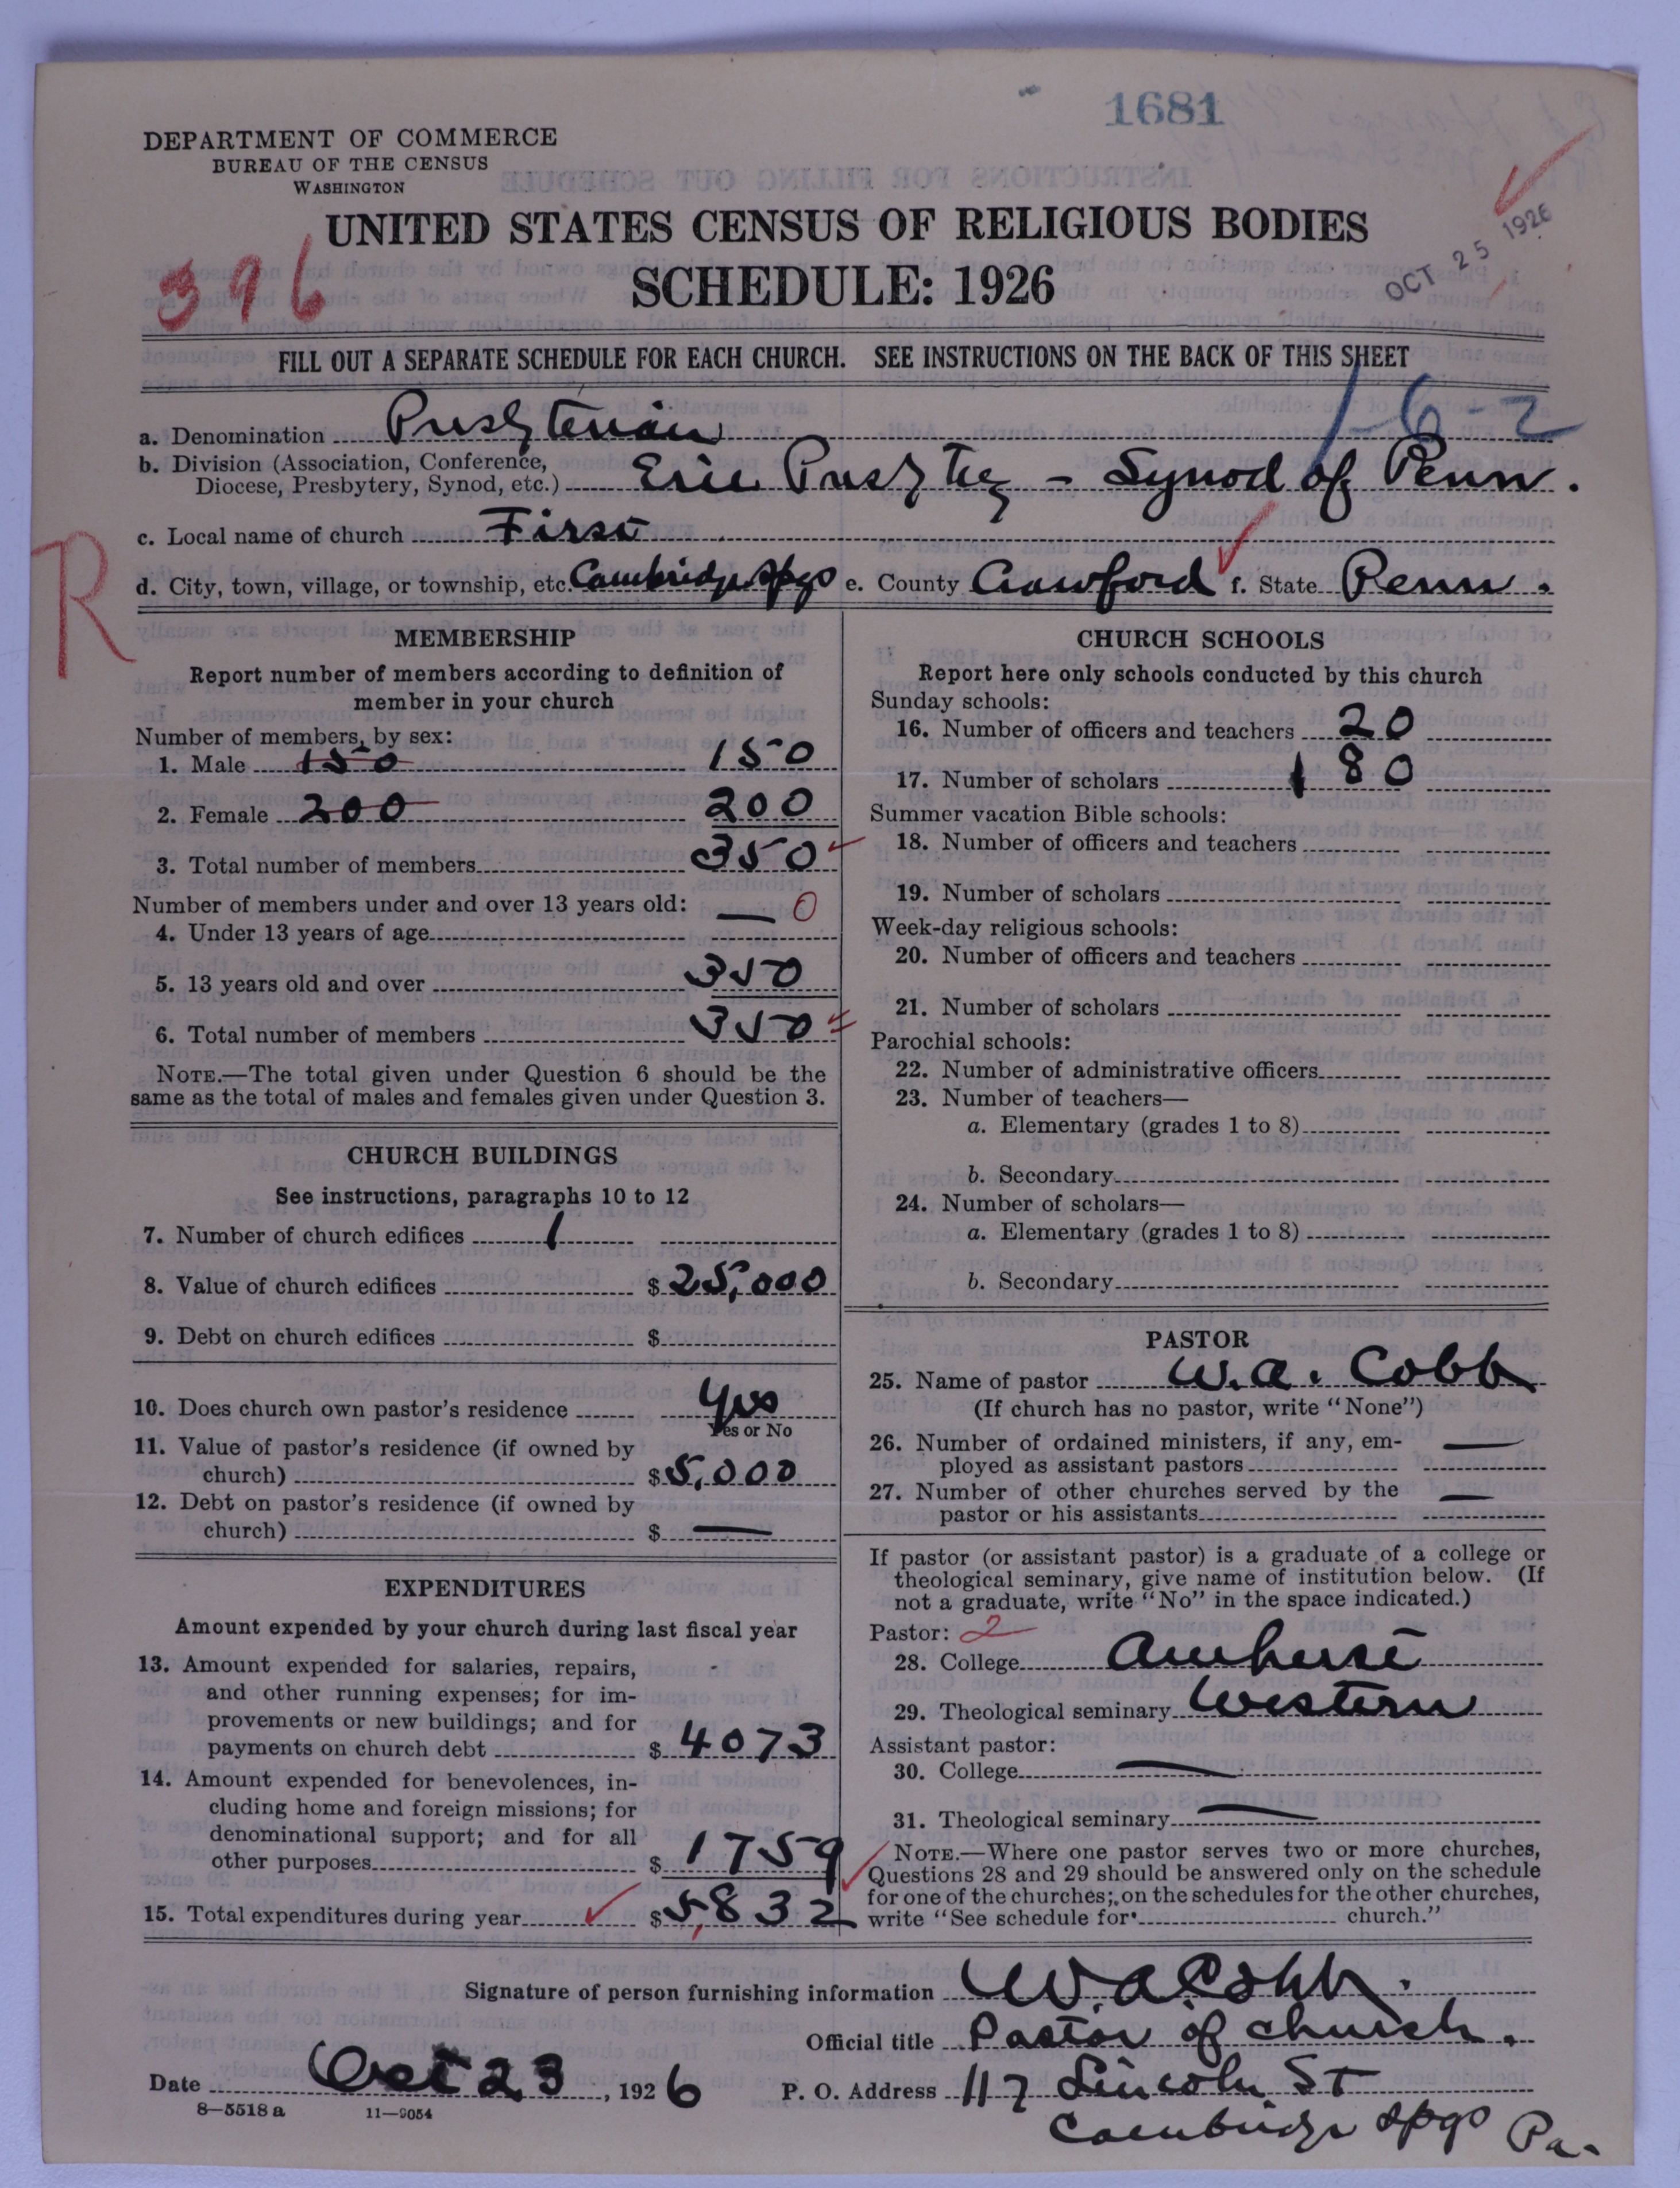 1681
DEPARTMENT OF COMMERCE
BUREAU OF THE CENSUS
WASHINGTON
UNITED STATES CENSUS OF RELIGIOUS BODIES
SCHEDULE: 1926
396
OCT 25 1926
FILL OUT A SEPARATE SCHEDULE FOR EACH CHURCH. SEE INSTRUCTIONS ON THE BACK OF THIS SHEET
1-6-2
a. Denomination Presbyterian
b. Division (Association, Conference,
Diocese, Presbytery, Synod, etc.) Erie Presbytery - Synod of Penn.
c. Local name of church First
R
d. City, town, village, or township, etc. Cambridge Spgs e. County Crawford f. State Penn.
MEMBERSHIP
Report number of members according to definition of
member in your church
Number of members, by sex:
1. Male 150 150
2. Female 200 200
3. Total number of members 350
Number of members under and over 13 years old:
4. Under 13 years of age — 0
5. 13 years old and over 350
6. Total number of members 350
NOTE.—The total given under Question 6 should be the
same as the total of males and females given under Question 3.
CHURCH BUILDINGS
See instructions, paragraphs 10 to 12
7. Number of church edifices 1
8. Value of church edifices $ 25,000
9. Debt on church edifices $
10. Does church own pastor's residence Yes
Yes or No
11. Value of pastor's residence (if owned by
church) $ 5,000
12. Debt on pastor's residence (if owned by
church) $ —
EXPENDITURES
Amount expended by your church during last fiscal year
13. Amount expended for salaries, repairs,
and other running expenses; for im-
provements or new buildings; and for
payments on church debt $ 4073
14. Amount expended for benevolences, in-
cluding home and foreign missions; for
denominational support; and for all
other purposes $ 1759
15. Total expenditures during year $ 5,832
CHURCH SCHOOLS
Report here only schools conducted by this church
Sunday schools:
16. Number of officers and teachers 20
17. Number of scholars 180
Summer vacation Bible schools:
18. Number of officers and teachers
19. Number of scholars
Week-day religious schools:
20. Number of officers and teachers
21. Number of scholars
Parochial schools:
22. Number of administrative officers
23. Number of teachers—
a. Elementary (grades 1 to 8)
b. Secondary
24. Number of scholars—
a. Elementary (grades 1 to 8)
b. Secondary
PASTOR
25. Name of pastor W. A. Cobb
(If church has no pastor, write "None")
26. Number of ordained ministers, if any, em-
ployed as assistant pastors —
27. Number of other churches served by the
pastor or his assistants —
If pastor (or assistant pastor) is a graduate of a college or
theological seminary, give name of institution below. (If
not a graduate, write "No" in the space indicated.)
Pastor: 2
28. College Amherst
29. Theological seminary Western
Assistant pastor:
30. College —
31. Theological seminary —
NOTE.—Where one pastor serves two or more churches,
Questions 28 and 29 should be answered only on the schedule
for one of the churches; on the schedules for the other churches,
write "See schedule for church."
Signature of person furnishing information W. A. Cobb.
Official title Pastor of church.
Date Oct 23, 1926 P. O. Address 117 Lincoln St
Cambridge Spgs Pa.
8—5518 a 11—9054